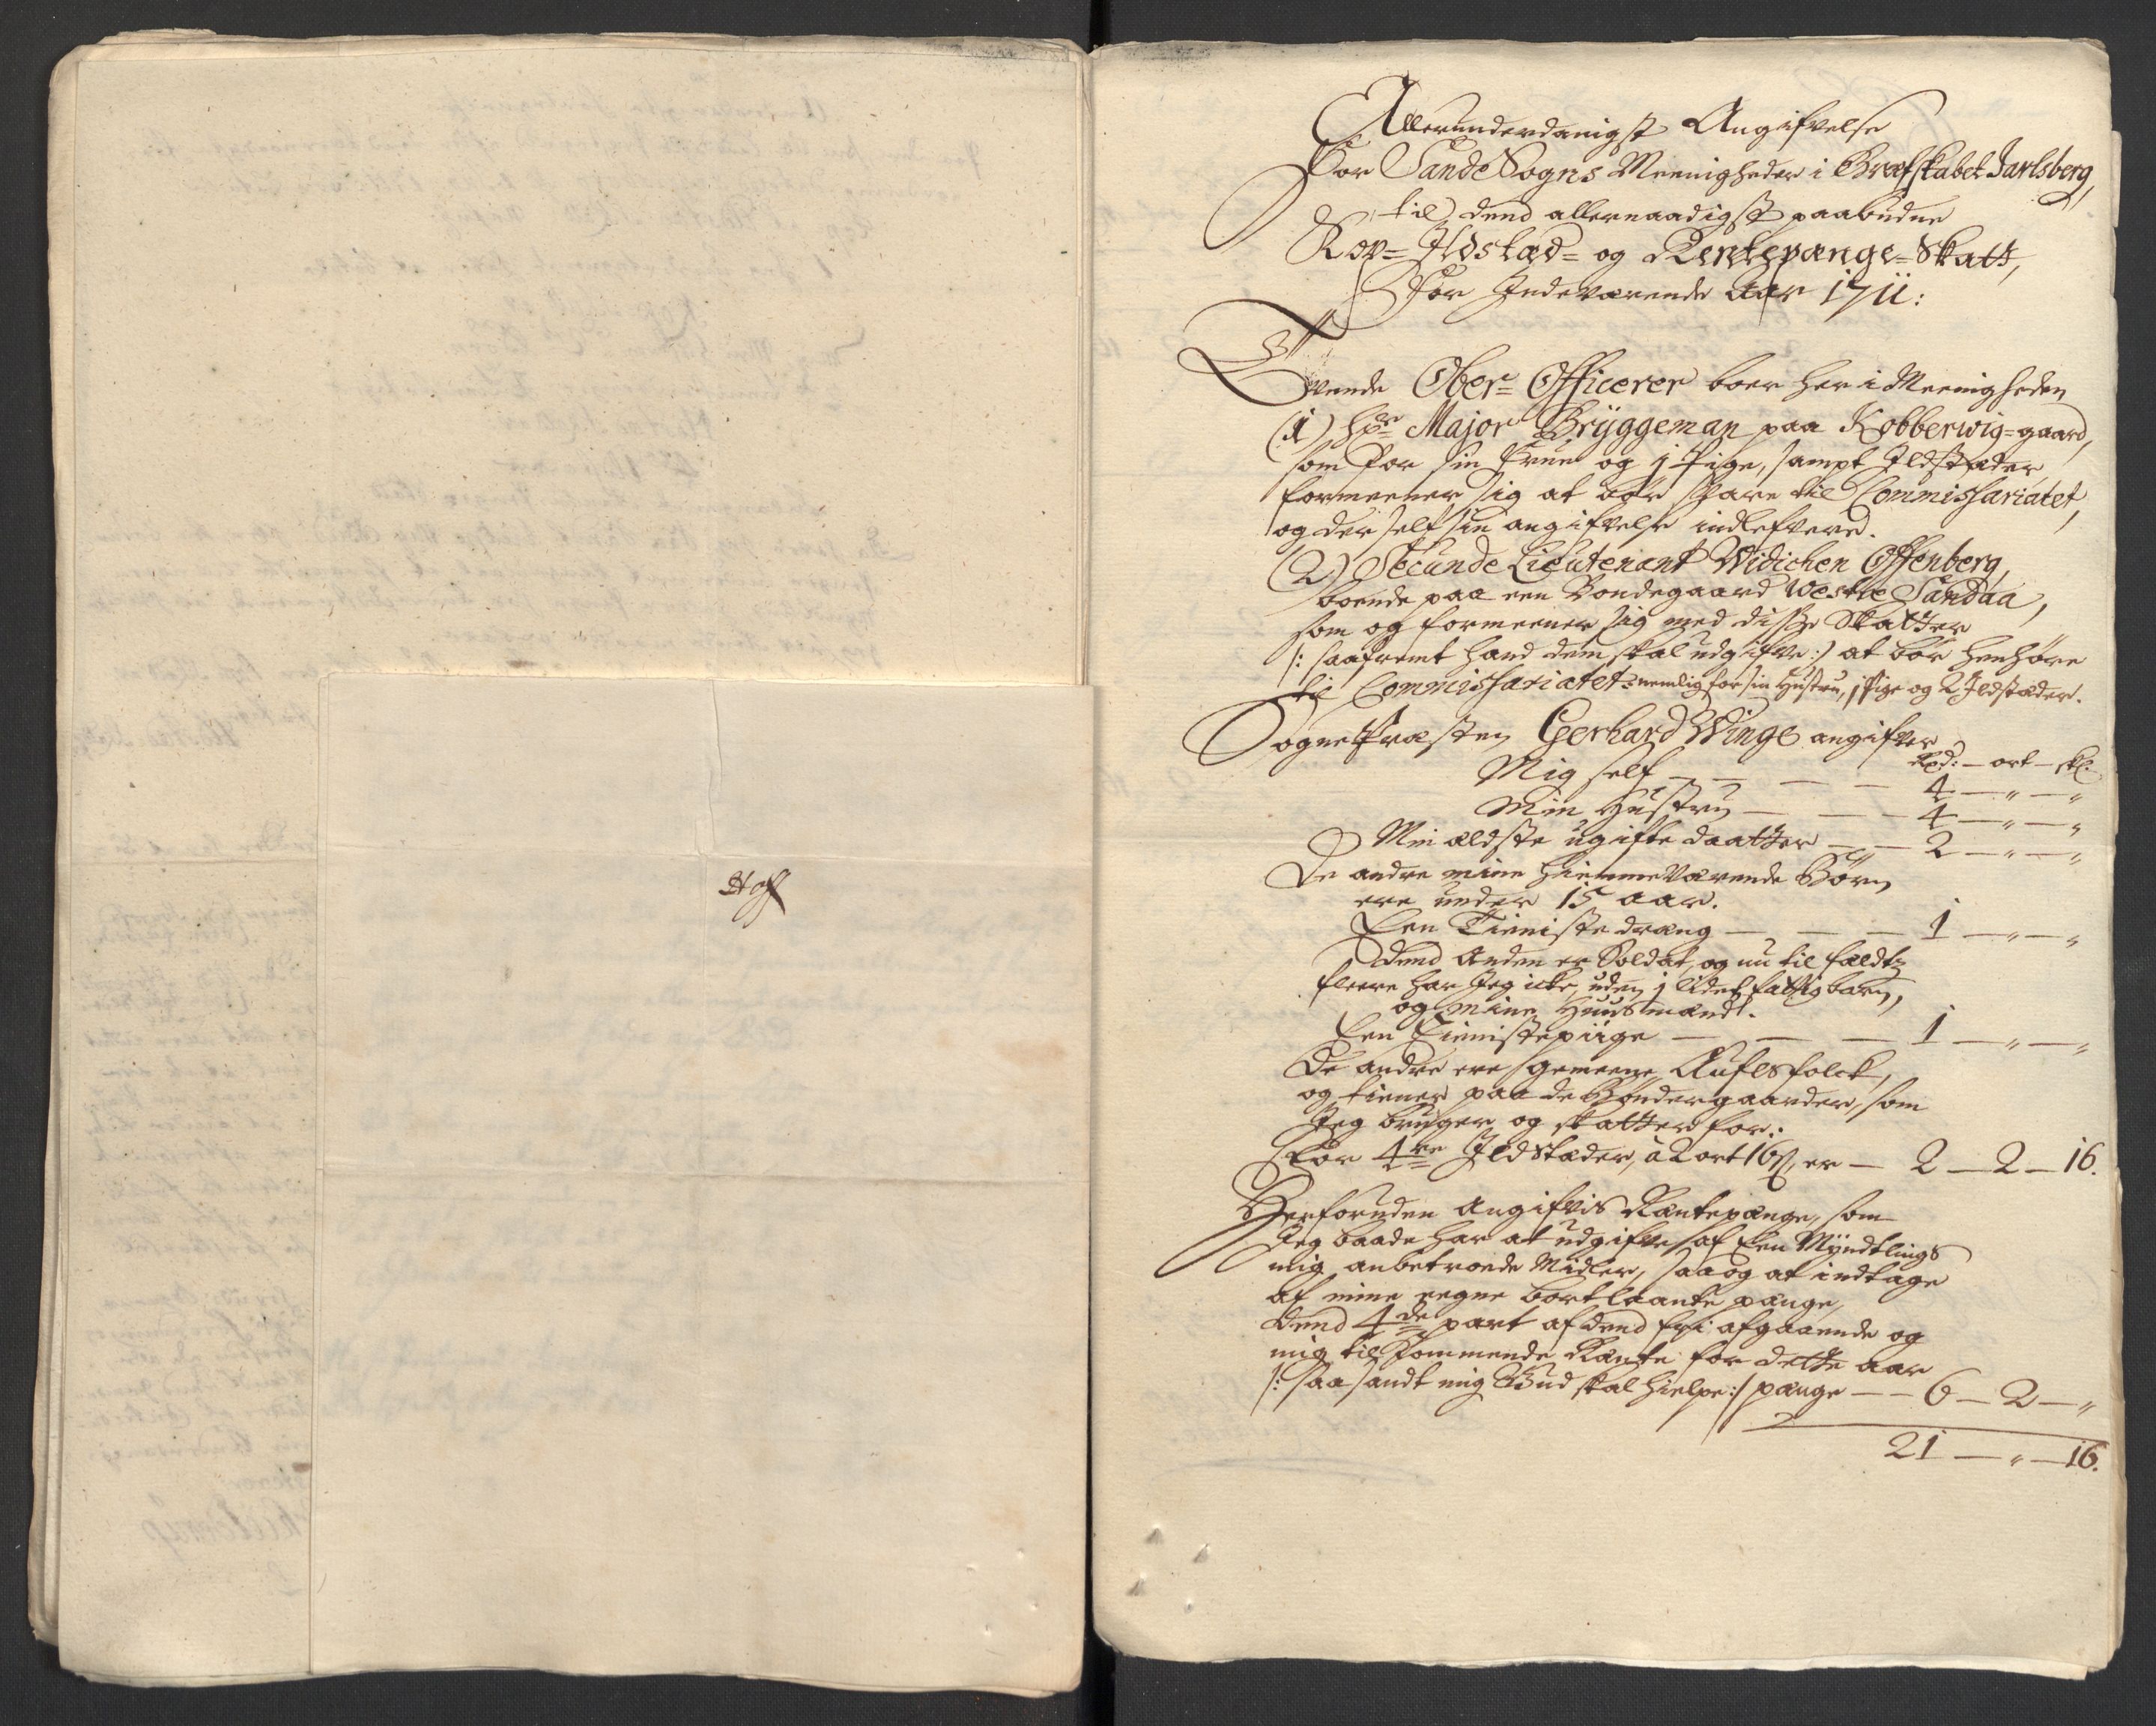 Hof
Allerunderdanigst Angifvelse
For Sande Sogns Meenigheder i Grefskabet Jarlsberg,
til dend allernaadigst paabudne
Kop= Ildsted= og Rentepenge=Skatt,
For Indeværende Aar 1711:
Tvende Ober= Officerer boer her i Meenigheden
(1) Hr. Major Bryggeman paa Kobberwig=gaard,
som for sin Frue og 1 Pige, sampt Ildstæder
formeener sig at bør svare til Commissariatet,
og der self sin angifvelse indlefvere.
(2) Secunde Lieutenant Widichen Offenberg,
boende paa een Bondegaard Westre Sandaa,
som og formeener sig med disse Skatter
/: saafremt hand dem skal udgifve :/ at bør henhøre
til Commissariatet: nemlig for sin Hustru, 1 Pige og 2 Ildstæder.
Sogne Præsten Gerhard Winge angifver
Rd: — ort — sk:
Mig self — — — — 4 — „ — „
Min Hustru — — — 4 — „ — „
Min ældste ugifte daatter — — 2 — „ — „
De andre mine hiemmeværende Børn
ere under 15 aar.
Een Tieniste dræng — — — 1 — „ — „
Dend anden er Soldat, og nu til fældtz
fleere har Jeg icke, uden 1 lidet fattig barn,
og mine Huusmænd.
Een Tienistepiige — — — 1 — „ — „
De andre ere gemeene Aufls folck,
og tiener paa de Bøndergaarder, som
Jeg bruger og skatter for:
For 4re Ildstæder, à 2 ort 16 s, er — 2 — 2 — 16.
Herforuden angifvis Rentepenge, som
Jeg baade har at udgifve af Een Myndtlings
mig anbetroede Midler, saa og at indtage
af mine eegne bortlaante penge,
dend 4de part af dend fra afgaaende og
mig tilkommende Rente for dette aar
/: saa sandt mig Gud skal hielpe :/ penge — — 6 — 2 — „
21 — „ — 16.